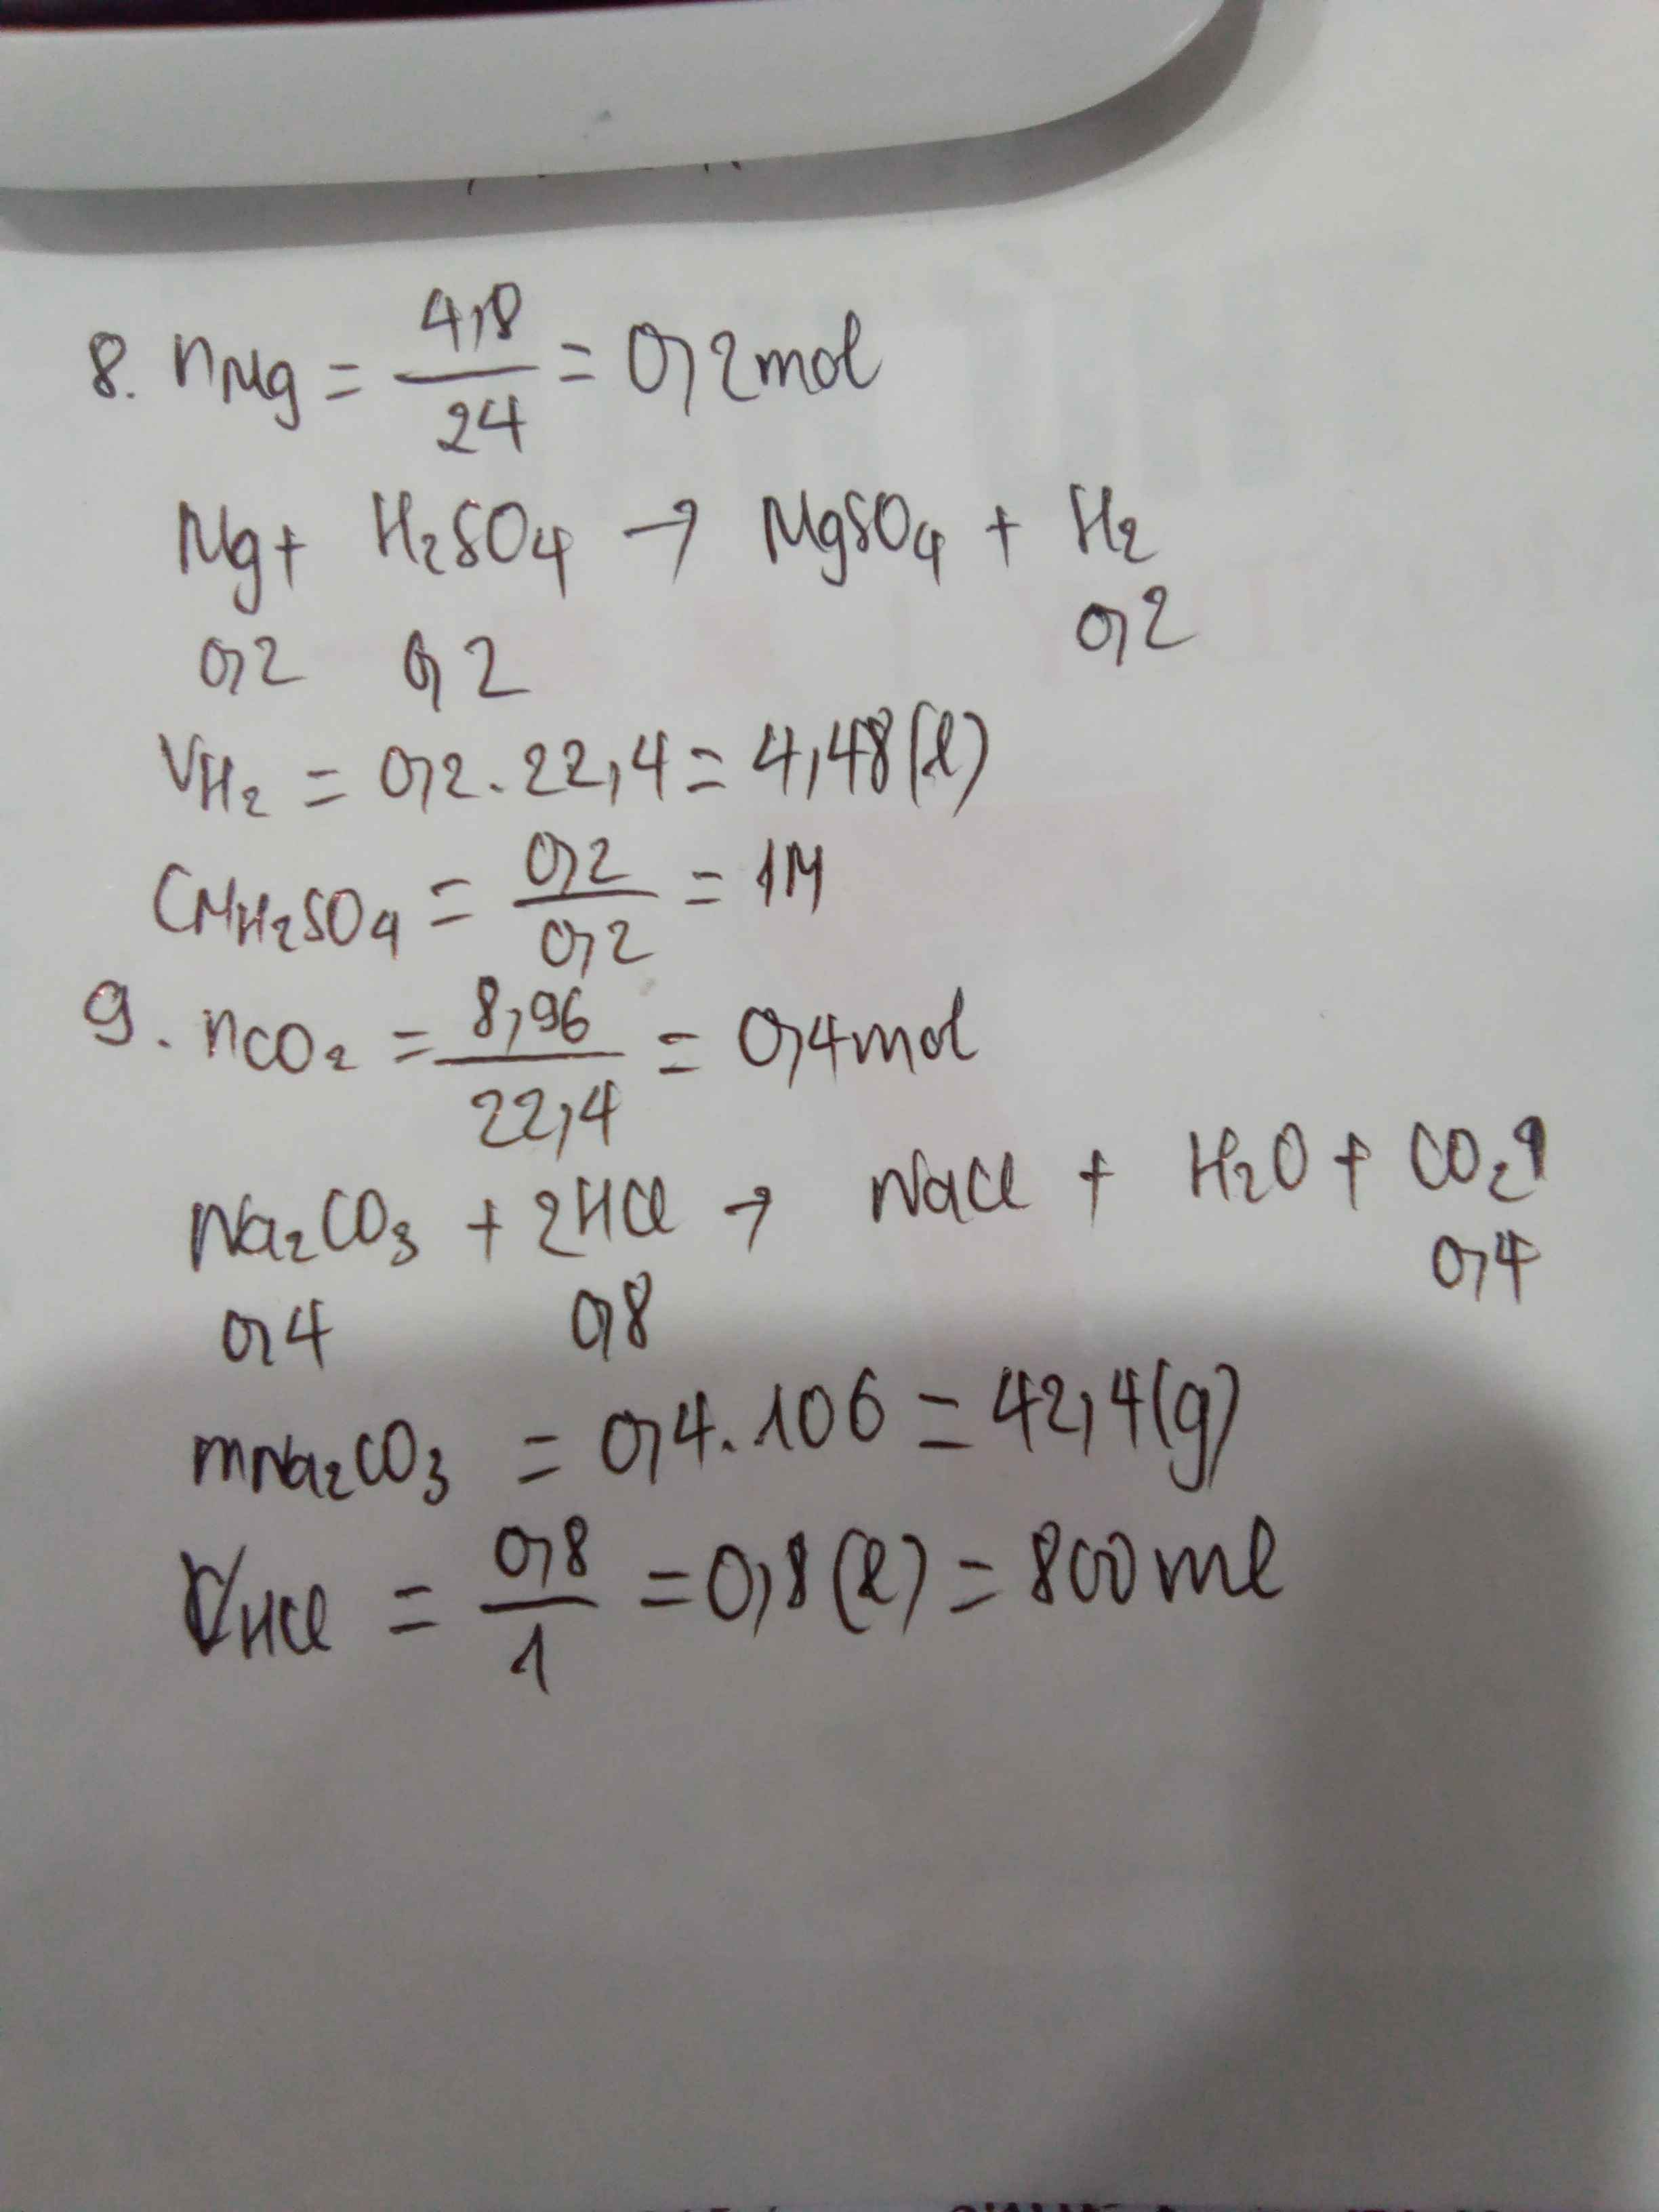 8. nMg = 4,8 / 24 = 0,2mol
Mg + H₂SO₄ → MgSO₄ + H₂
0,2 0,2 0,2
VH₂ = 0,2 . 22,4 = 4,48(l)
CMH₂SO₄ = 0,2 / 0,2 = 1M
9. nCO₂ = 8,96 / 22,4 = 0,4mol
Na₂CO₃ + 2HCl → NaCl + H₂O + CO₂↑
0,4 0,8 0,4
mNa₂CO₃ = 0,4 . 106 = 42,4(g)
VHCl = 0,8 / 1 = 0,8(l) = 800ml